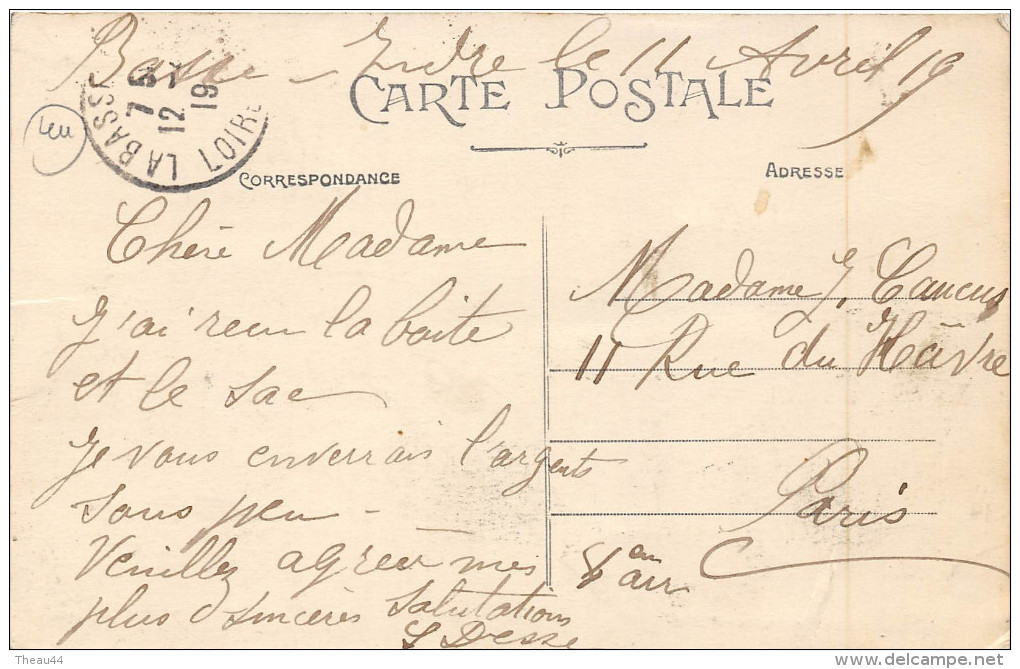 Basse - Indre le 11 Avril 19
CARTE POSTALE
LA BASSE
7 5
12 - 4
19
LOIRE
CORRESPONDANCE
ADRESSE
Chère Madame
J'ai reçu la boite
et le sac
Je vous enverrais l'argents
sous peu -
Veuillez agreer mes
plus sincères Salutations
Madame J.
11 Rue du Hâvre
Paris
8 em arr
Theau44
www.delcampe.net